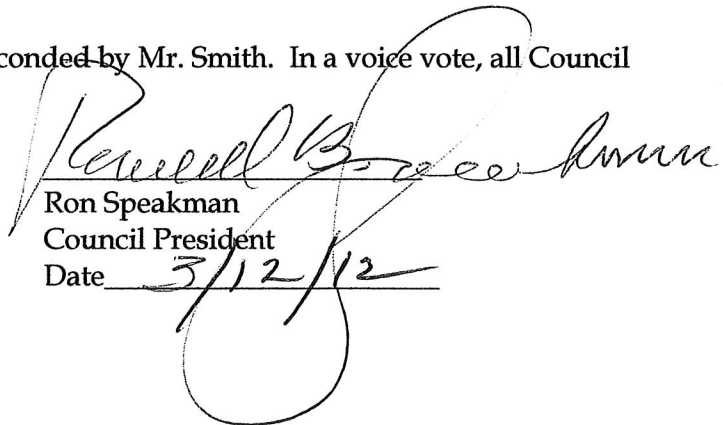 conded by Mr. Smith. In a voice vote, all Council
Ronald B. Speakman
Ron Speakman
Council President
Date 3/12/12